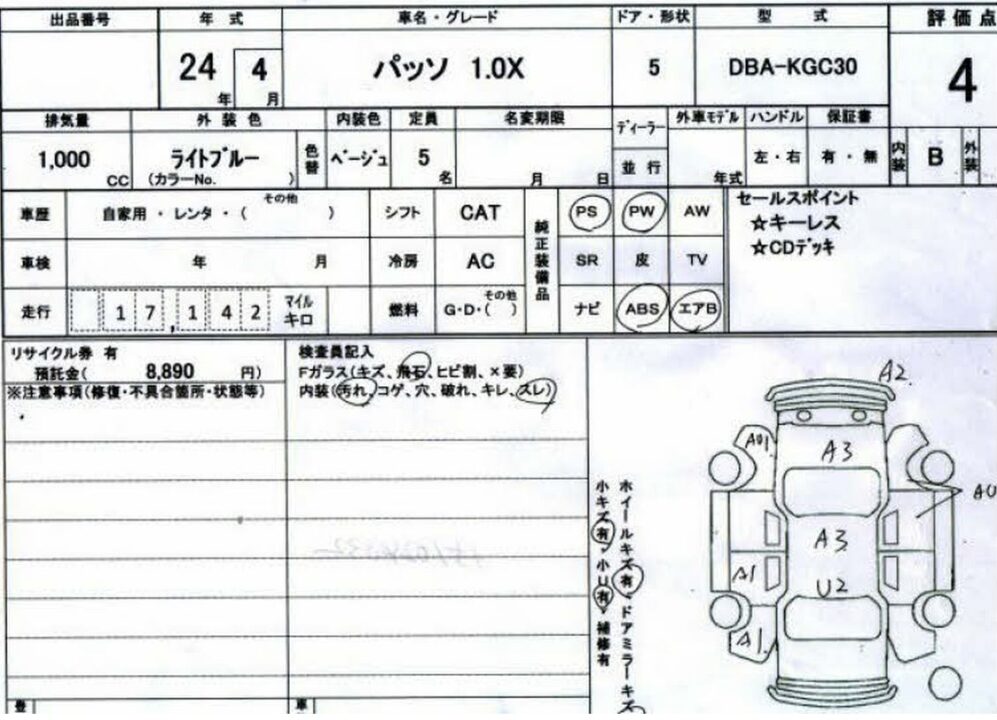 出品番号 年式 車名・グレード ドア・形状 型式 評価点
24年 4月 パッソ 1.0X 5 DBA-KGC30 4
排気量 外装色 内装色 定員 名変期限 ディーラー 外車モデル ハンドル 保証書
1,000 CC ライトブルー 色替 ベージュ 5名 月 日 並行 年式 左・右 有・無 内装 B 外装
(カラーNo. )
車歴 自家用・レンタ・( その他 ) シフト CAT 純正装備品 PS PW AW
セールスポイント
☆キーレス
☆CDデッキ
車検 年 月 冷房 AC SR 皮 TV
走行 17,142 マイル キロ 燃料 G・D・( その他 ) ナビ ABS エアB
リサイクル券 有
預託金( 8,890 円)
※注意事項(修復・不具合箇所・状態等)
検査員記入
Fガラス(キズ、飛石、ヒビ割、×要)
内装(汚れ、コゲ、穴、破れ、キレ、スレ)
ホイールキズ有、ドアミラーキズ
小キズ有、小U有、補修有
A2
A3
A3
A1
U2
A1
車